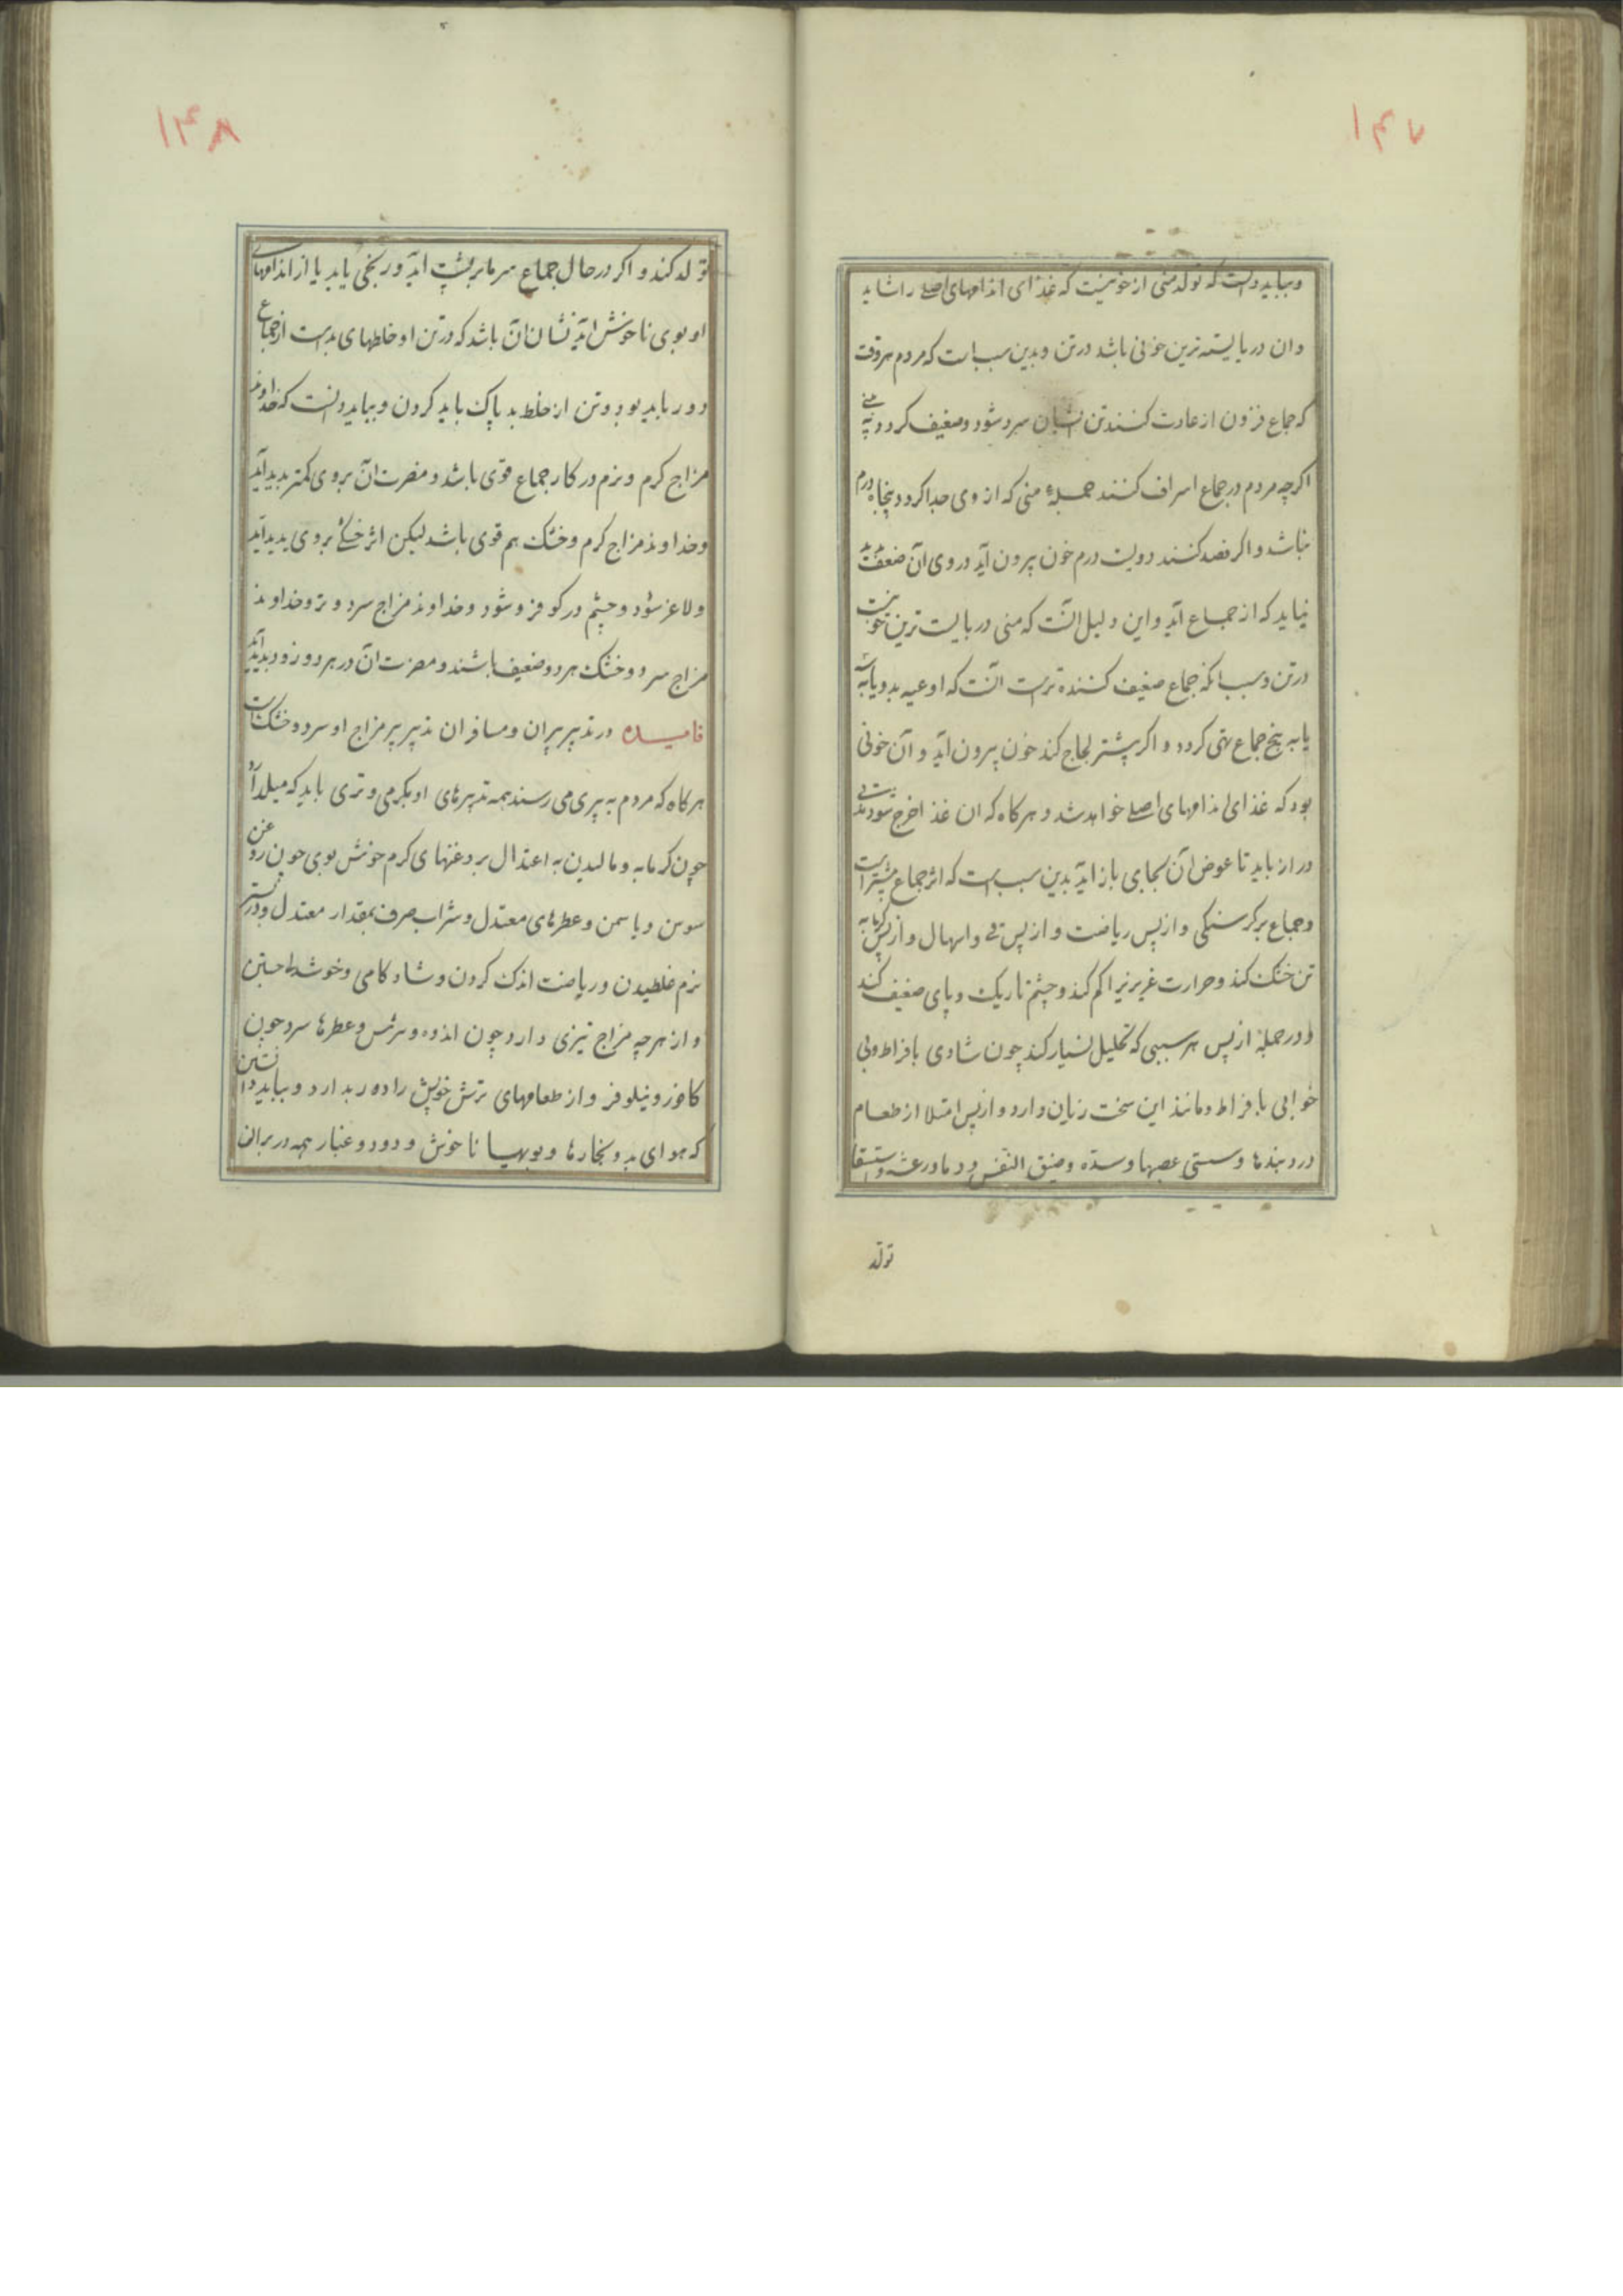 ۱۴۷
و بباید دانست که تولد منی از خونیست که غذای اندامهای اصلی را شاید
و ان دربایسته ترین خونی باشد در تن و بدین سبب است که مردم هر وقت
که جماع فزون از عادت کنند تن ایشان سرد شود و ضعیف کردد
اکرچه مردم در جماع اسراف کنند جملهٔ منی که از وی جدا کردد پنجاه درم
نباشد و اکر فصد کنند دویست درم خون بیرون آید در وی آن ضعف
نیاید که از جماع آید و این دلیل آنست که منی دربایست ترین خونیست
در تن و سبب انکه جماع ضعیف کننده ترست آنست که اوعیه بدو یا به سه
یا به پنج جماع تهی کردد و اکر بیشتر لجاج کند خون بیرون آید و آن خونی
بود که غذای اندامهای اصلی خواهد شد و هر کاه که ان غذا خرج شود مدتی
دراز باید تا عوض آن بجای باز آید بدین سبب است که اثر جماع بیشتر است
و جماع بر کرسنکی و از پس ریاضت و از پس قی و اسهال و از پس کرمابه
تن خشک کند و حرارت غریزیرا کم کند و چشم تاریک و پای ضعیف کند
و در جمله از پس هر سببی که تحلیل بسیار کند چون شادی بافراط و بی
خوابی بافراط و مانند این سخت زیان دارد و از پس امتلا از طعام
درد بندها و سستی عصبها و سدّه و ضیق النفس و دما و رعشه و استسقا
تولد
۱۴۸
تولد کند و اکر در حال جماع سرما بر پشت اید و رنجی یابد یا از اندامهای
او بوی ناخوش اید نشان ان باشد که در تن او خلطهای بدست از جماع
دور باید بود و تن از خلط بد پاک باید کردن و بباید دانست که خداوند
مزاج کرم و نرم در کار جماع قوی باشد و مضرت آن بروی کمتر بدید آید
و خداوند مزاج کرم و خشک هم قوی باشد لیکن اثر خشکی بروی بدید آید
و لاغر شود و چشم در کو فرو شود و خداوند مزاج سرد و تر و خداوند
مزاج سرد و خشک هر دو ضعیف باشند و مضرت آن در هر دو زود بدید آید
فایده در تدبیر پیران و مسافران تدبیر پیر مزاج او سرد و خشک است
هر کاه که مردم به پیری می رسند همه تدبیرهای او بکرمی و تری باید که میل دارد
چون کرمابه و مالیدن به اعتدال بروغنهای کرم خوش بوی چون روغن
سوسن و یاسمن و عطرهای معتدل و شراب صرف بمقدار معتدل و در بستر
نرم غلطیدن و ریاضت اندک کردن و شادکامی و خوشدلی جستن
و از هر چه مزاج تیزی دارد چون اندوه و ترس و عطرها سرد چون
کافور و نیلوفر و از طعامهای ترش خویش را دور بدارد و بباید دانستن
که هوای بد و بخارها و بویها ناخوش و دود و غبار همه در پیران